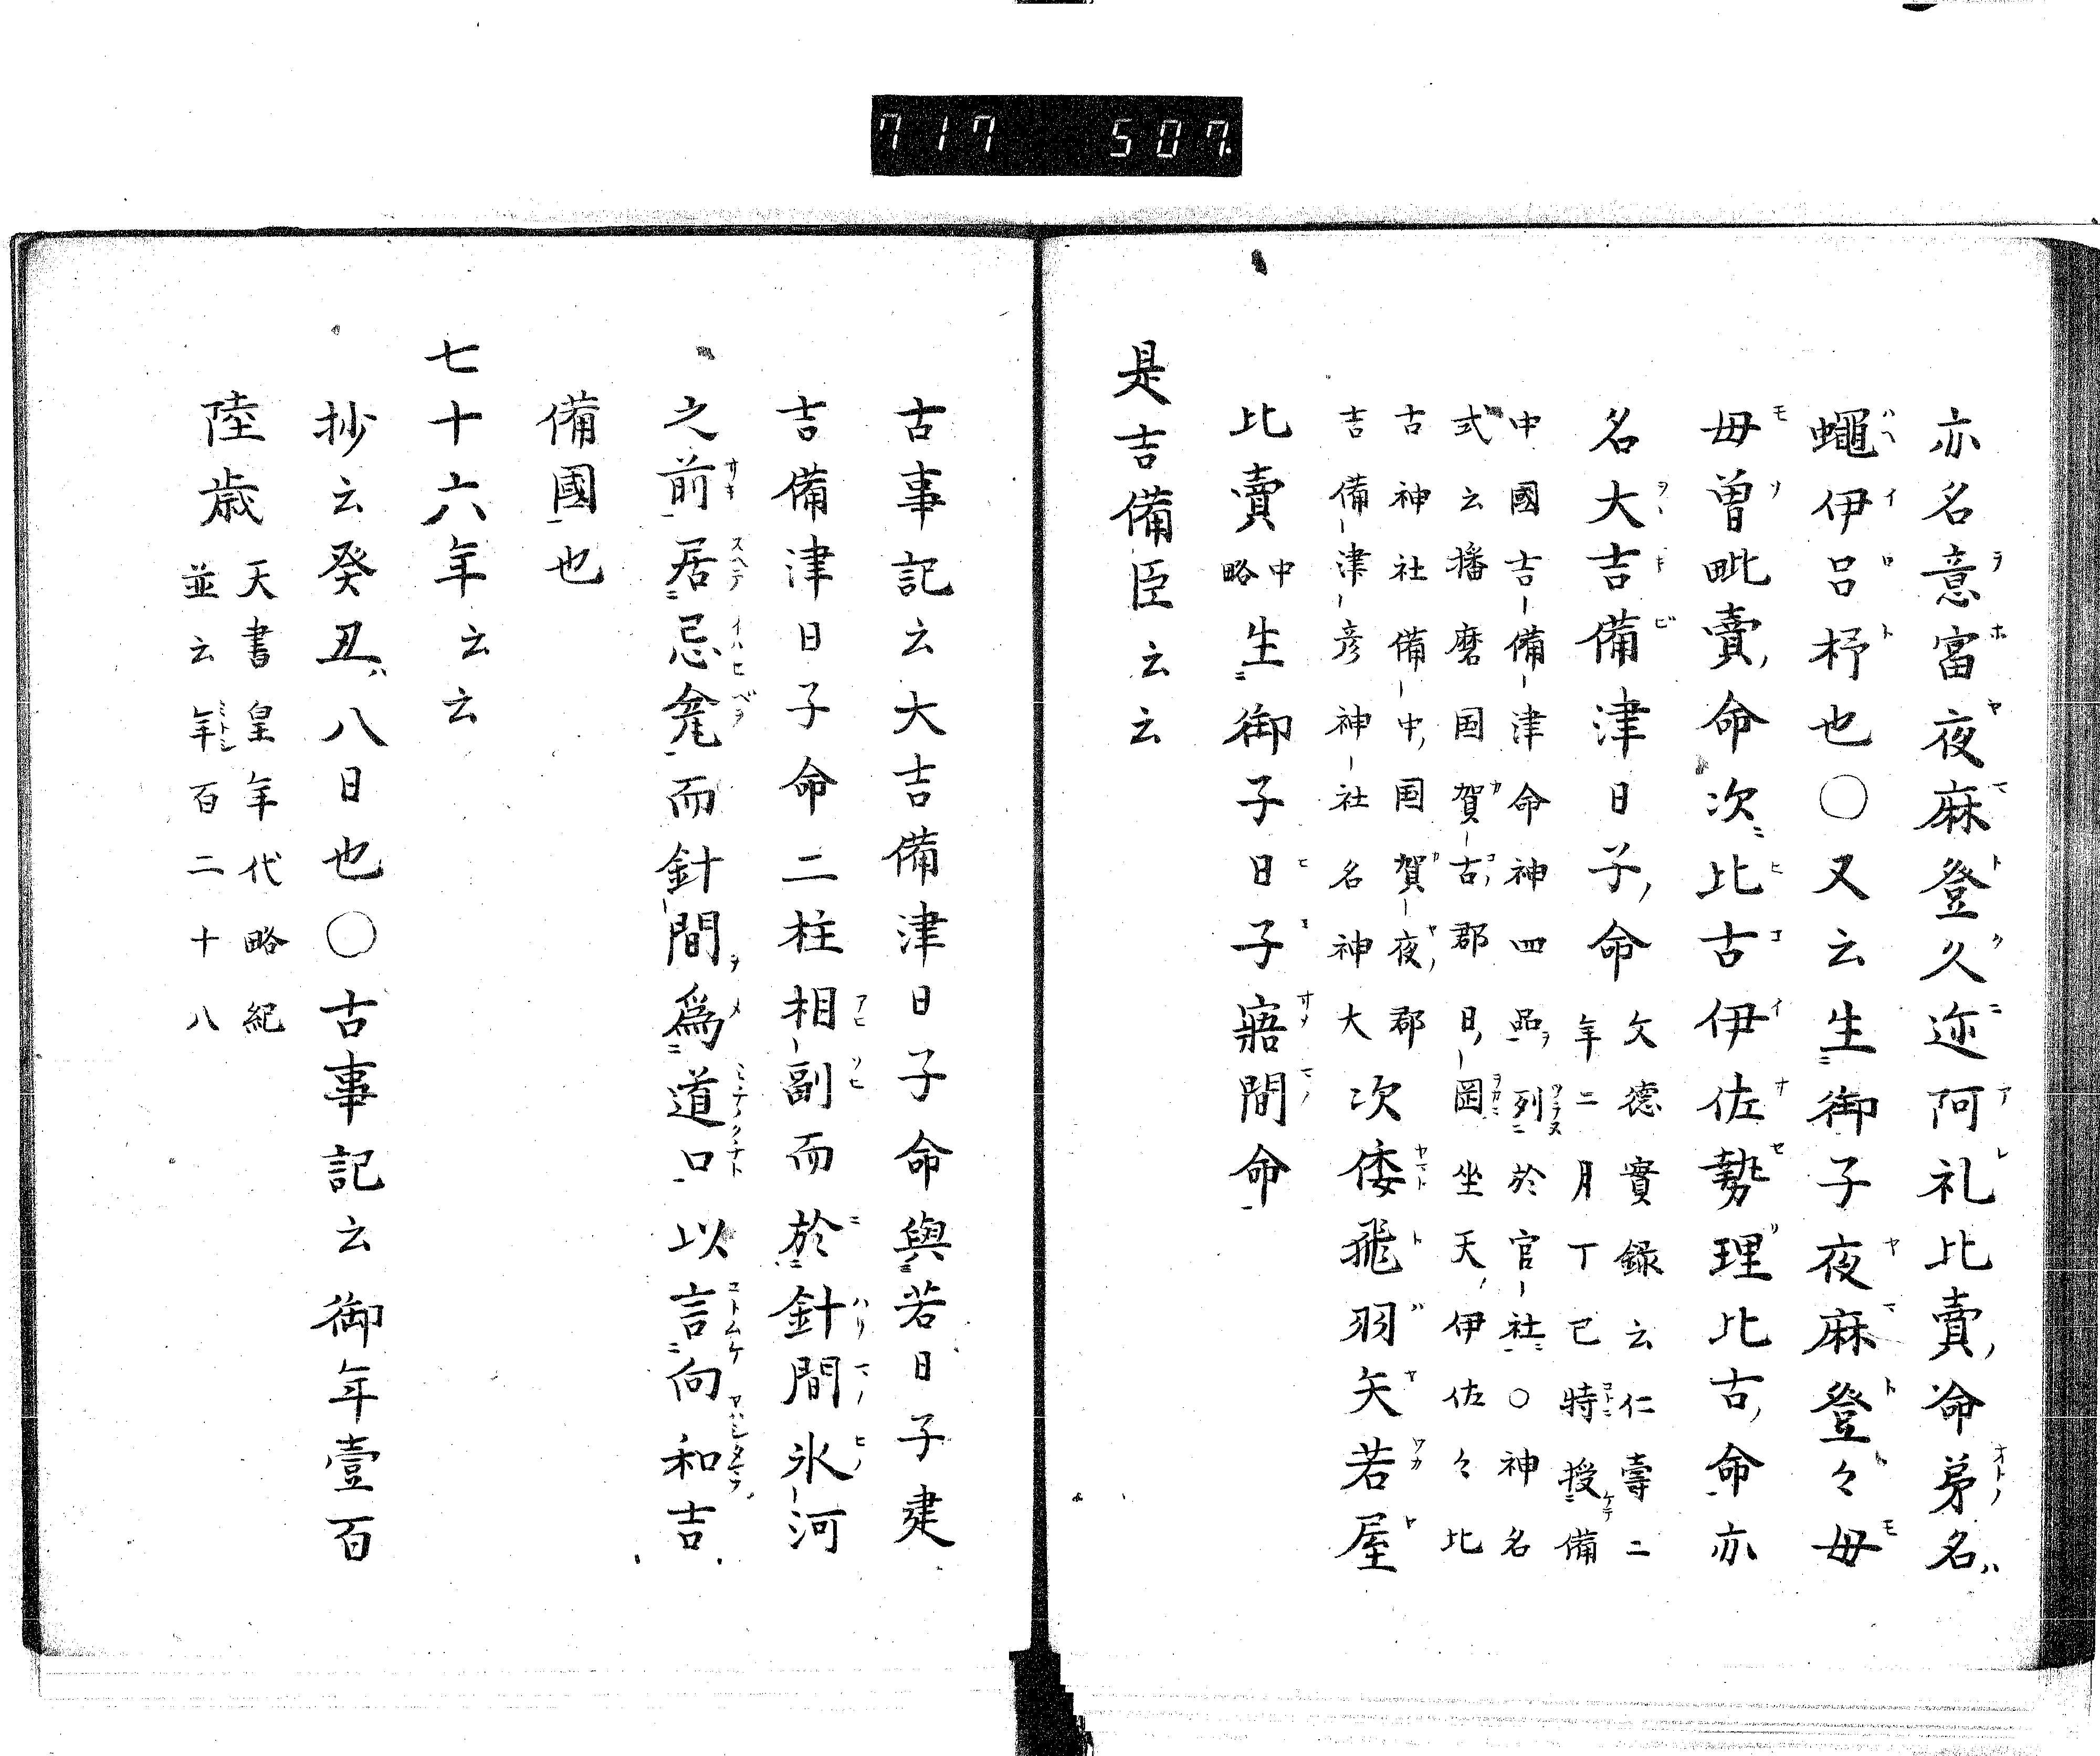 717 507
亦名意富夜麻登久迩阿礼比賣命弟名
蠅伊呂杼也〇又云生御子夜麻登々母
母曽毗賣命次比古伊佐勢理比古命亦
名大吉備津日子命
文徳實録云仁壽二
年二月丁巳特授備
中國吉備津命神四品列於官社〇神名
式云播磨国賀古郡日岡坐天伊佐々比
古神社備中国賀夜郡
吉備津彦神社名神大
次倭飛羽矢若屋
比賣中略生御子日子寤間命
是吉備臣云云
古事記云大吉備津日子命與若日子建
吉備津日子命二柱相副而於針間氷河
之前居忌瓮而針間爲道口以言向和吉
備國也
七十六年云云
抄云癸丑八日也〇古事記云御年壹百
陸歳
天書皇年代略紀
並云年百二十八